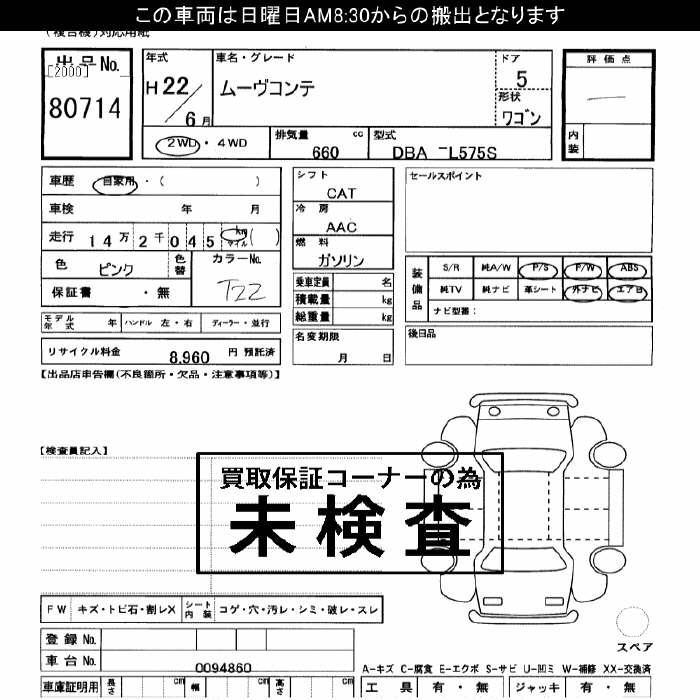 この車両は日曜日AM8:30からの搬出となります
(複合機)対応用紙
出品No.
[2000]
80714
年式
H 22／6月
車名・グレード
ムーヴコンテ
ドア
5
形状
ワゴン
2WD・4WD
排気量 cc
660
型式
DBA -L575S
評価点
内装
車歴 自家用・( )
車検 年 月
走行 14万2千045 km マイル ( )
色 ピンク
色替
カラーNo.
T22
保証書 ・無
シフト
CAT
冷房
AAC
燃料
ガソリン
乗車定員 名
積載量 kg
総重量 kg
セールスポイント
装備品
S/R 純A/W P/S P/W ABS
純TV 純ナビ 革シート 外ナビ エアB
ナビ型番:
モデル年式 年 ハンドル 左・右 ディーラー・並行
リサイクル料金 8,960 円 預託済
名変期限
月 日
後日品
【出品店申告欄(不良箇所・欠品・注意事項等)】
【検査員記入】
買取保証コーナーの為
未検査
FW キズ・トビ石・割レX シート内装 コゲ・穴・汚レ・シミ・破レ・スレ
登録No.
車台No.
0094860
スペア
A-キズ C-腐食 E-エクボ S-サビ U-凹ミ W-補修 XX-交換済
車庫証明用 長さ cm 幅 cm 高さ cm
工具 有・無 ジャッキ 有・無